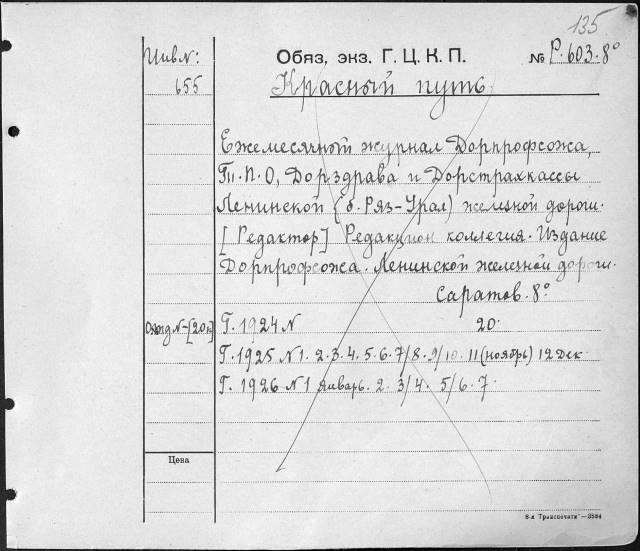 135
Инв. N:
655
Обяз. экз. Г. Ц. К. П. № Р.603.8°
Красный путь.
Ежемесячный журнал Дорпрофсожа,
П.О, Дорздрава и Дорстрахкассы
Ленинской (б. Ряз-Урал) железной дороги.
[Редактор] Редакцион коллегия. Издание
Дорпрофсожа. Ленинской железной дороги.
Саратов. 8°
Г. 1924 N 20.
Г. 1925 N 1. 2. 3. 4. 5. 6. 7/8. 9/10. 11 (ноябрь) 12 Дек
Г. 1926 N 1 январь. 2. 3/4. 5/6. 7.
Цена
8-я Транспечати"—3584